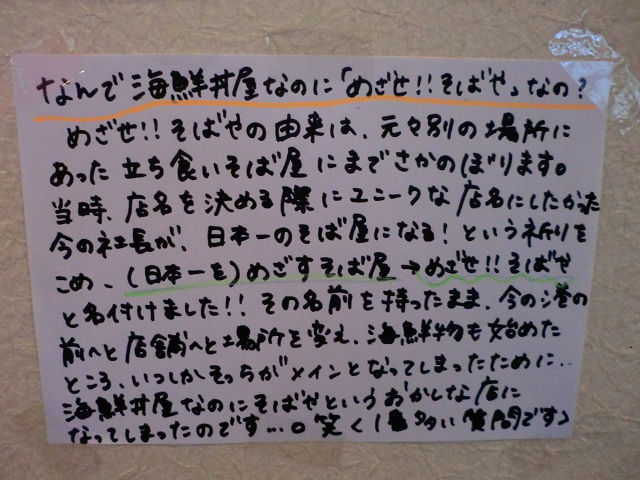 なんで海鮮丼屋なのに「めざせ!!そばや」なの?
めざせ!!そばやの由来は、元々別の場所に
あった立ち食いそば屋にまでさかのぼります。
当時、店名を決める際にユニークな店名にしたかった
今の社長が、日本一のそば屋になる!という祈りを
こめ、(日本一を)めざすそば屋→めざせ!!そばや
と名付けました!!その名前を持ったまま、今の港の
前へと店舗へと場所を変え、海鮮物も始めた
ところ、いつしかそっちがメインとなってしまったために..
海鮮丼屋なのにそばやというおかしな店に
なってしまったのです…。笑<1番多い質問です>